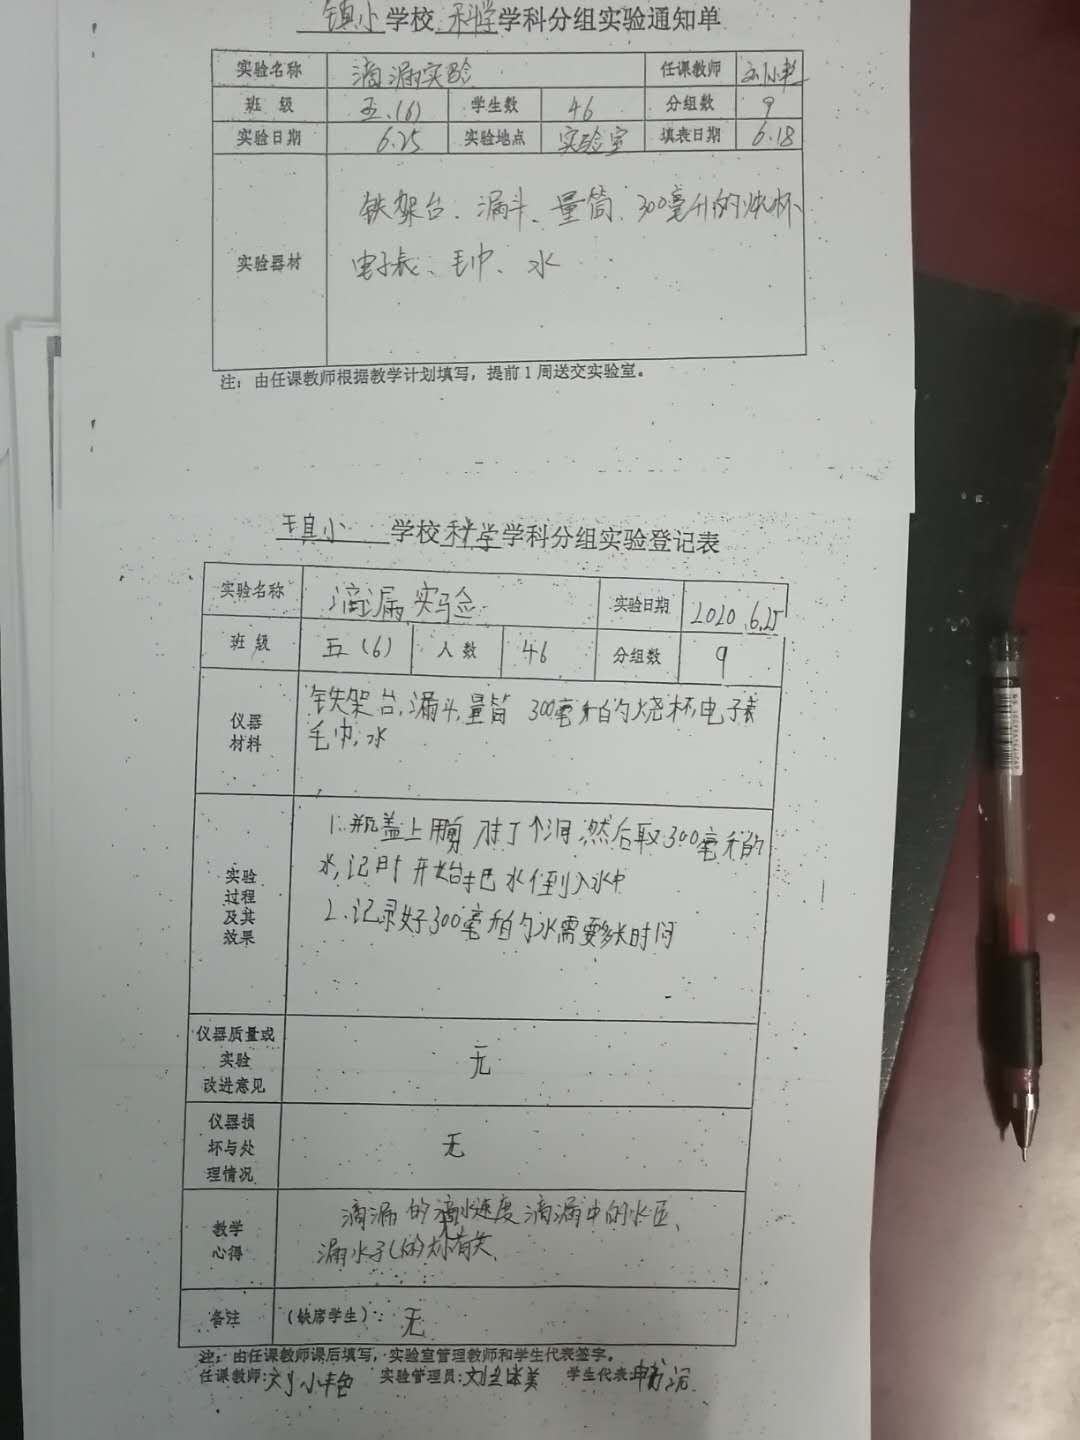 镇小学校科学学科分组实验通知单
实验名称 滴漏实验 任课教师
班 级 五.(6) 学生数 46 分组数 9
实验日期 6.25 实验地点 实验室 填表日期 6.18
实验器材
铁架台、漏斗、量筒、300毫升的烧杯、
电子表、毛巾、水
注：由任课教师根据教学计划填写，提前1周送交实验室。
镇小 学校科学学科分组实验登记表
实验名称 滴漏实验 实验日期 2020.6.25
班 级 五(6) 人 数 46 分组数 9
仪器
材料
铁架台,漏斗,量筒 300毫升的烧杯,电子表
毛巾,水
实验
过程
及其
效果
1.瓶盖上用剪 打了个洞,然后取300毫升的
水,记时开始把水倒入水中
2.记录好300毫升的水需要多长时间
仪器质量或
实验
改进意见
无
仪器损
坏与处
理情况
无
教学
心得
滴漏的滴水速度滴漏中的水位、
漏水孔的大小有关、
备注 (缺席学生)： 无
注：由任课教师课后填写，实验室管理教师和学生代表签字。
任课教师: 实验管理员: 学生代表: